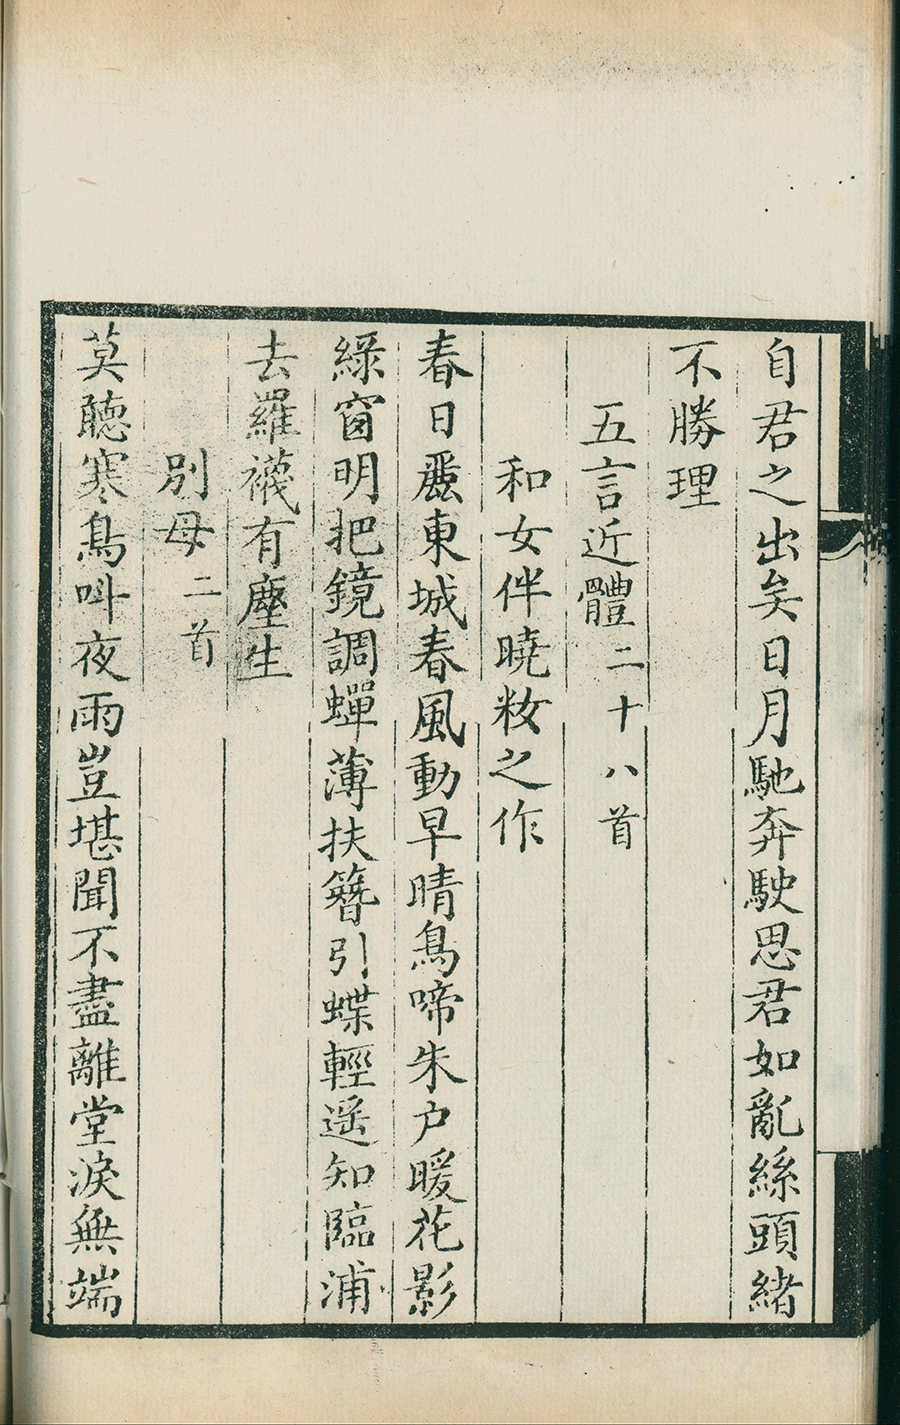 自君之出矣日月馳奔駛思君如亂絲頭緒
不勝理
五言近體二十八首
和女伴曉妝之作
春日麗東城春風動早晴鳥啼朱户暖花影
綠窗明把鏡調蟬薄扶簪引蝶輕遥知臨浦
去羅襪有塵生
別母二首
莫聽寒鳥呌夜雨豈堪聞不盡離堂淚無端